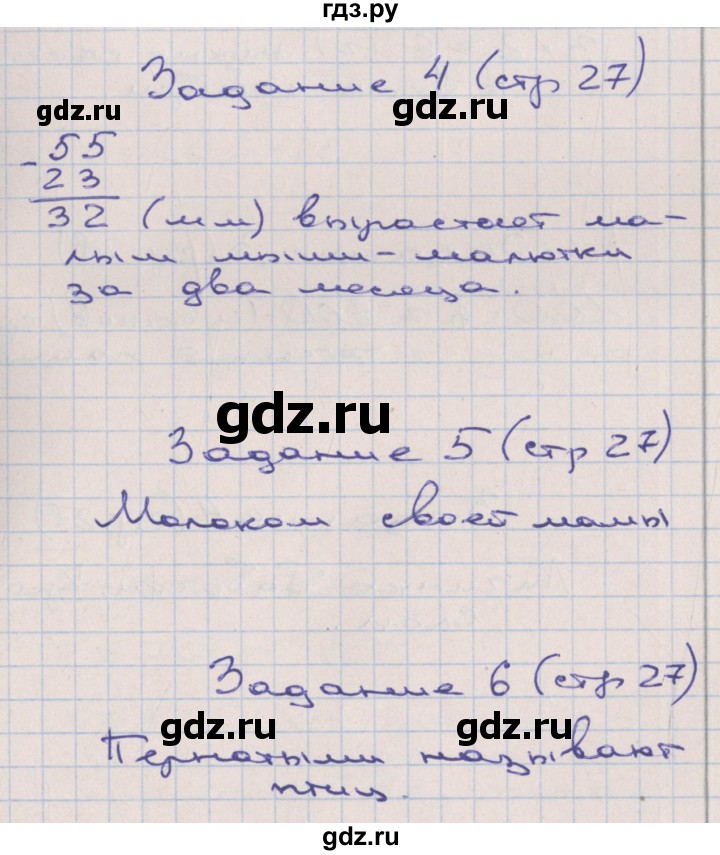 гдз.ру
Задание 4 (стр 27)
gdz.ru
gdz.ru
- 55
23
32 (мм) вырастает ма-
лыш мыши-малютки
за два месяца.
gdz.ru
Задание 5 (стр 27)
Молоком своей мамы
Задание 6 (стр 27)
gdz.ru
gdz.ru
Пернатыми называют
птиц.
gdz.ru